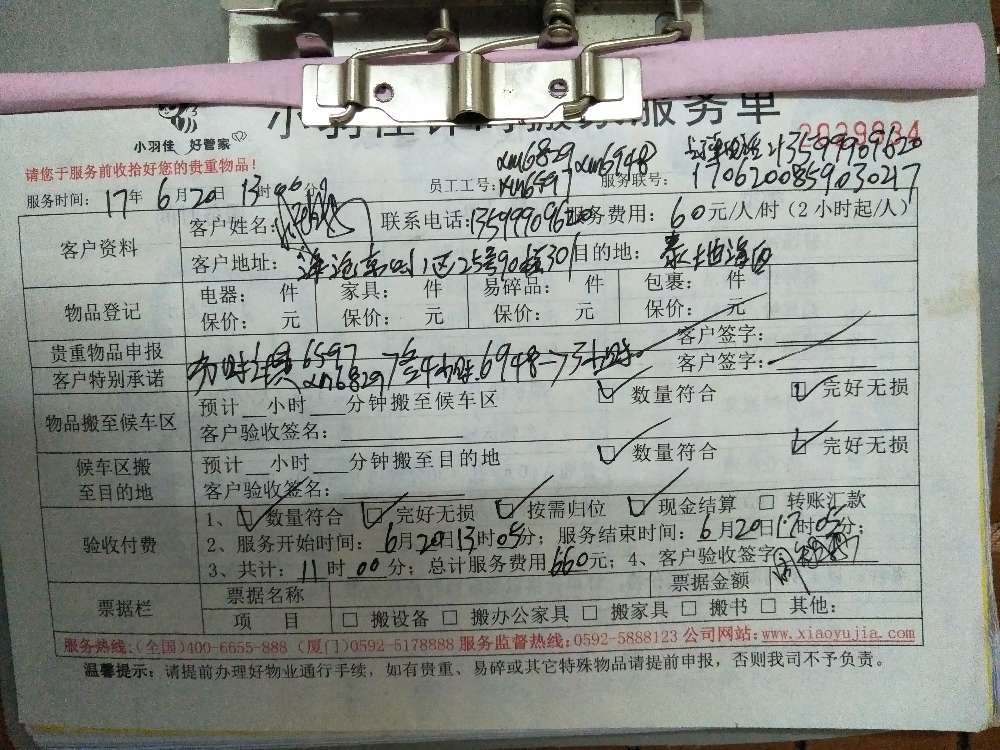 小羽佳 好管家
小羽佳计时搬家服务单
请您于服务前收拾好您的贵重物品!
xm6829 xm6948 13599909620
服务时间: 17年 6月20日 13时 分 员工工号: xm6597 服务联号: 1706200859030217
客户资料 客户姓名: 联系电话: 服务费用: 60元/人/时(2小时起/人)
客户地址: 25号 301 目的地: 泰地海西
物品登记 电器: 件 家具: 件 易碎品: 件 包裹: 件
保价: 元 保价: 元 保价: 元 保价: 元
贵重物品申报 客户签字:
客户特别承诺 6597 xm6829 4小时 6948 3小时 客户签字:
物品搬至候车区 预计 小时 分钟搬至候车区 数量符合 完好无损
客户验收签名:
候车区搬至目的地 预计 小时 分钟搬至目的地 数量符合 完好无损
客户验收签名:
验收付费 1、 数量符合 完好无损 按需归位 现金结算 转账汇款
2、服务开始时间: 6月20日13时05分; 服务结束时间: 6月20日17时05分;
3、共计: 11时00分; 总计服务费用660元; 4、客户验收签字
票据栏 票据名称 票据金额
项 目 搬设备 搬办公家具 搬家具 搬书 其他:
服务热线:(全国)400-6655-888 (厦门)0592-5178888 服务监督热线:0592-5888123 公司网站:www.xiaoyujia.com
温馨提示: 请提前办理好物业通行手续, 如有贵重、易碎或其它特殊物品请提前申报, 否则我司不予负责。